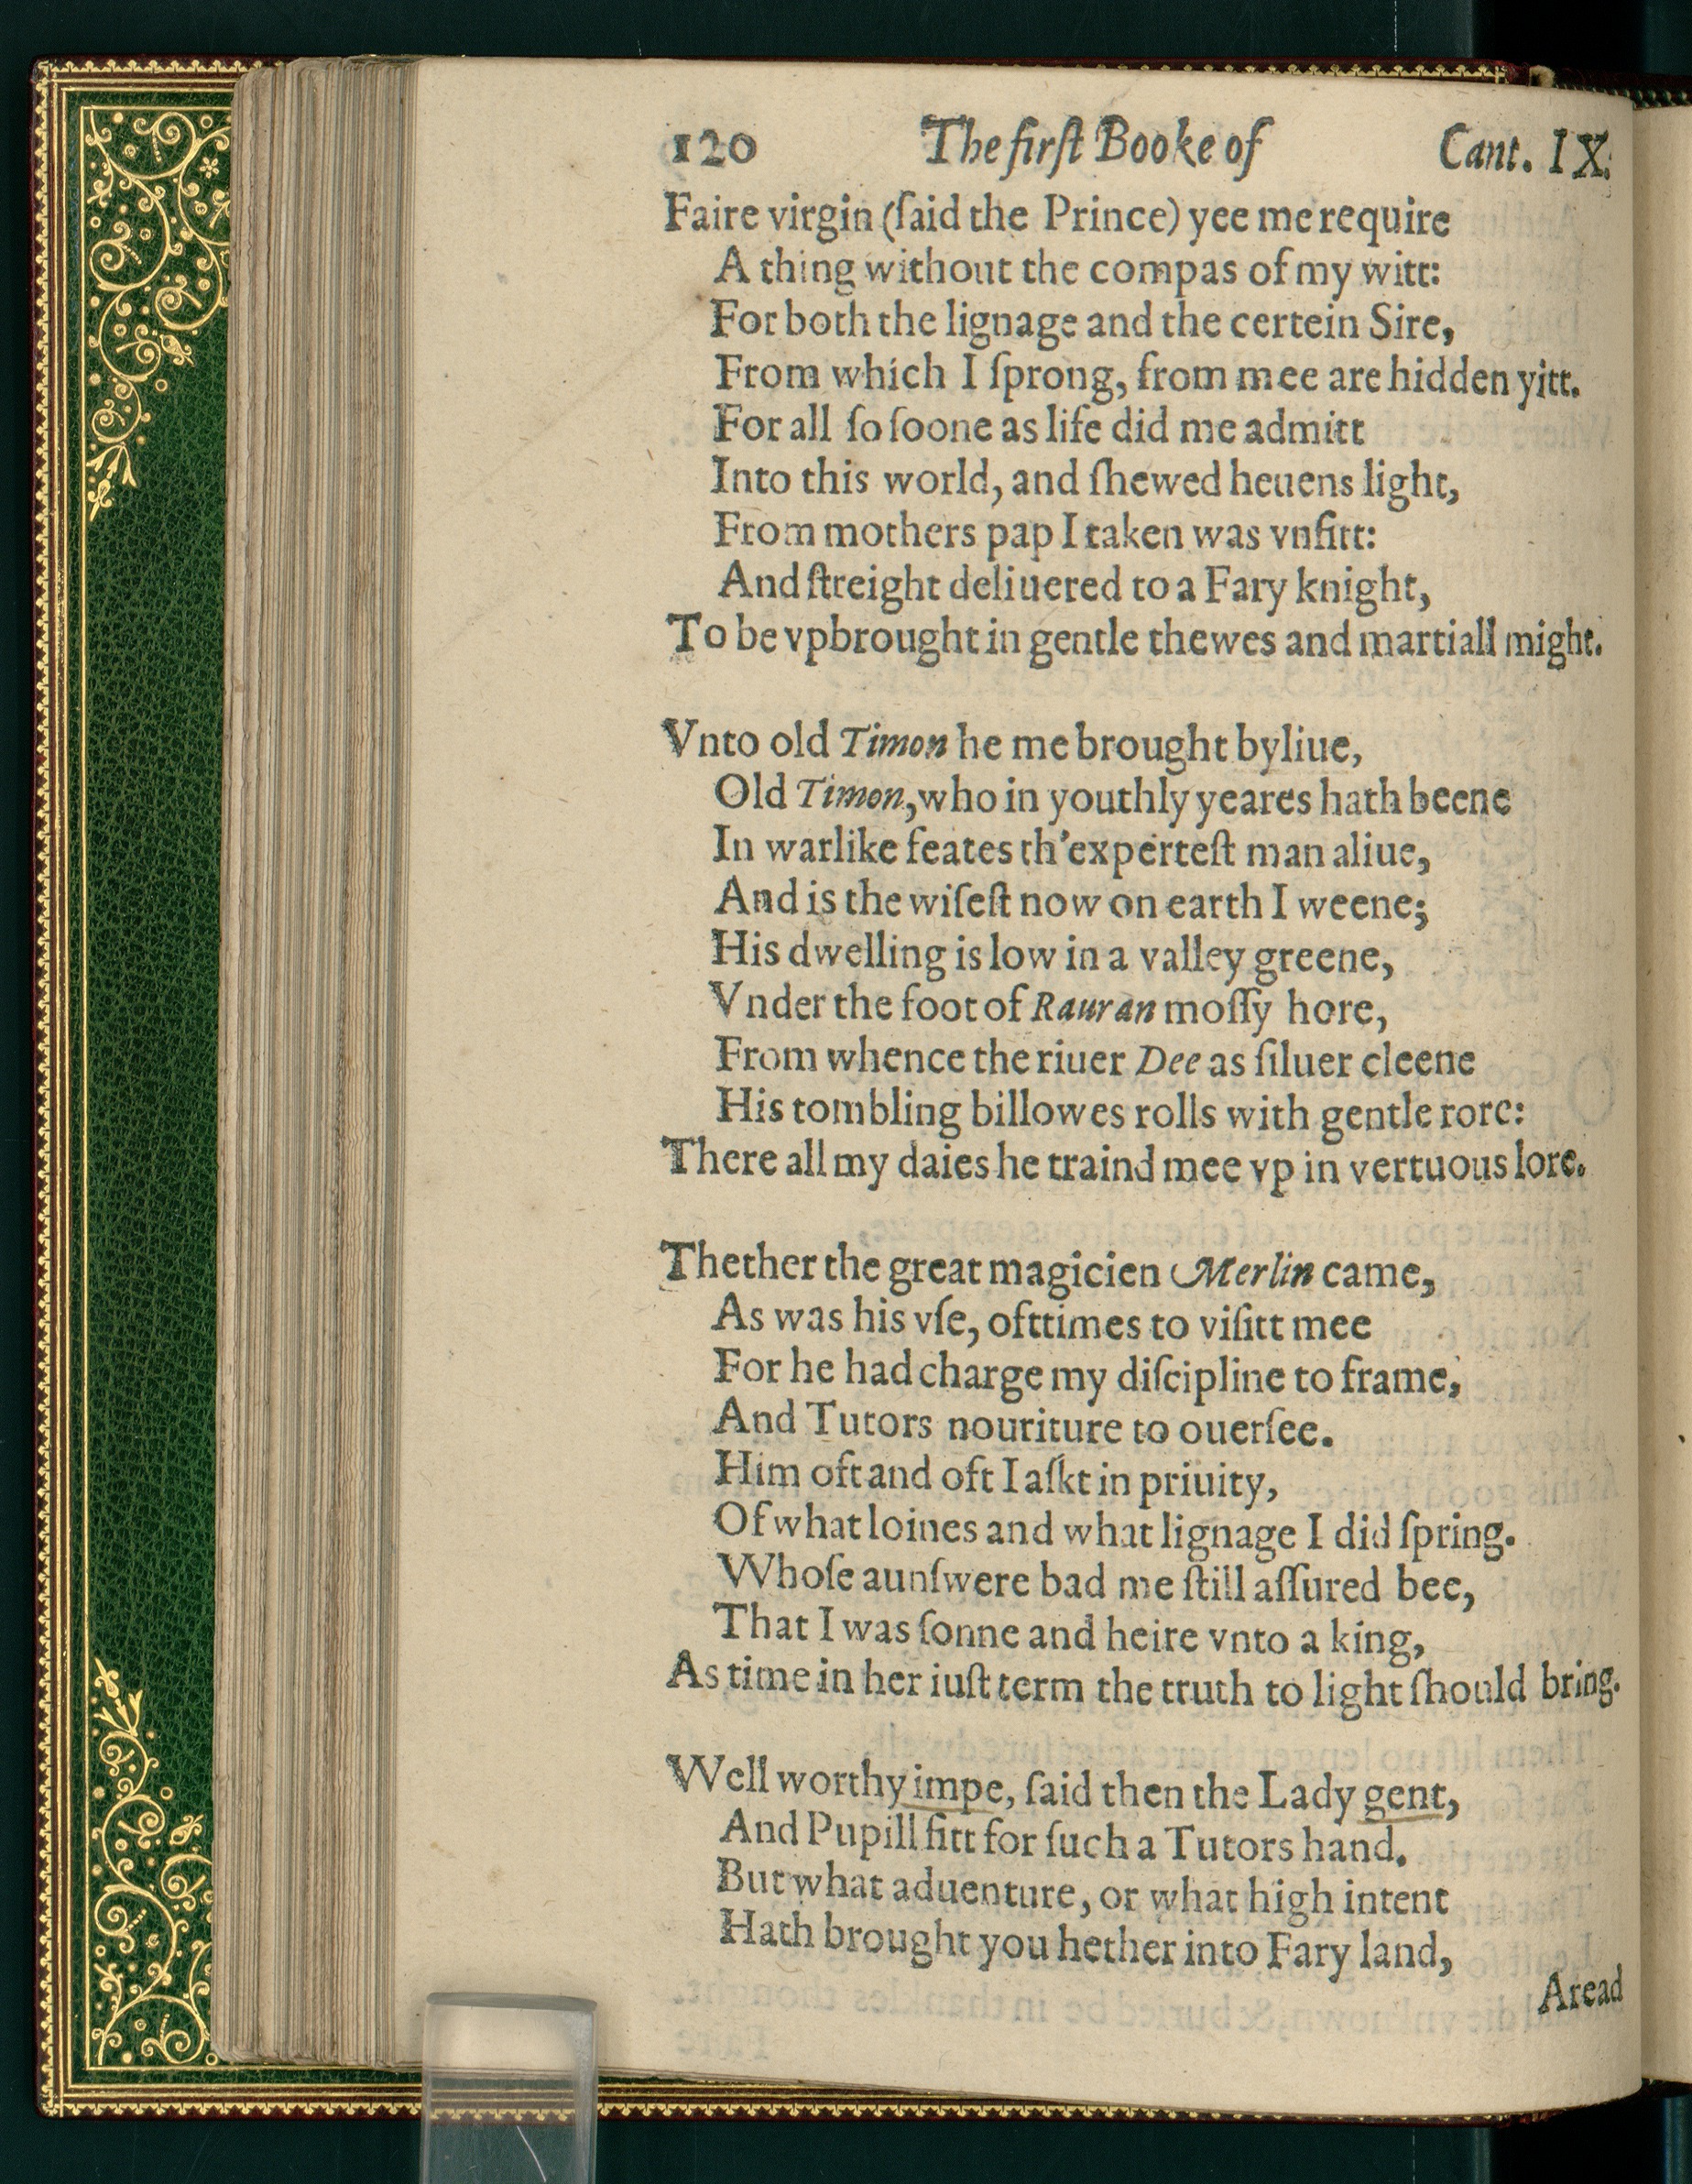 120 The firſt Booke of Cant. IX.
Faire virgin (ſaid the Prince) yee me require
A thing without the compas of my witt:
For both the lignage and the certein Sire,
From which I ſprong, from mee are hidden yitt.
For all ſo ſoone as life did me admitt
Into this world, and ſhewed heuens light,
From mothers pap I taken was vnfitt:
And ſtreight deliuered to a Fary knight,
To be vpbrought in gentle thewes and martiall might.

Vnto old Timon he me brought byliue,
Old Timon, who in youthly yeares hath beene
In warlike feates th'experteſt man aliue,
And is the wiſeſt now on earth I weene;
His dwelling is low in a valley greene,
Vnder the foot of Rauran moſſy hore,
From whence the riuer Dee as ſiluer cleene
His tombling billowes rolls with gentle rore:
There all my daies he traind mee vp in vertuous lore.

Thether the great magicien Merlin came,
As was his vſe, ofttimes to viſitt mee
For he had charge my diſcipline to frame,
And Tutors nouriture to ouerſee.
Him oft and oft I aſkt in priuity,
Of what loines and what lignage I did ſpring.
Whoſe aunſwere bad me ſtill aſſured bee,
That I was ſonne and heire vnto a king,
As time in her iuſt term the truth to light ſhould bring.

Well worthy impe, ſaid then the Lady gent,
And Pupill fitt for ſuch a Tutors hand.
But what aduenture, or what high intent
Hath brought you hether into Fary land,
Aread